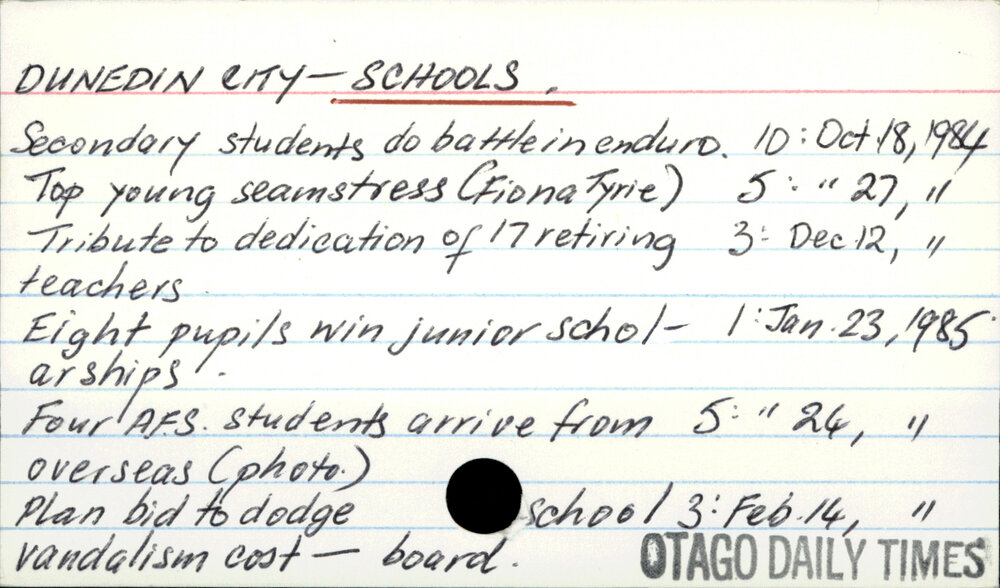 DUNEDIN CITY — SCHOOLS.
Secondary students do battle in enduro. 10: Oct 18, 1984
Top young seamstress (Fiona Tyrie) 5: " 27, "
Tribute to dedication of 17 retiring 3: Dec 12, "
teachers.
Eight pupils win junior schol- 1: Jan. 23, 1985
arships.
Four A.F.S. students arrive from 5: " 24, "
overseas (photo.)
Plan bid to dodge school 3: Feb. 14, "
vandalism cost — board.
OTAGO DAILY TIMES